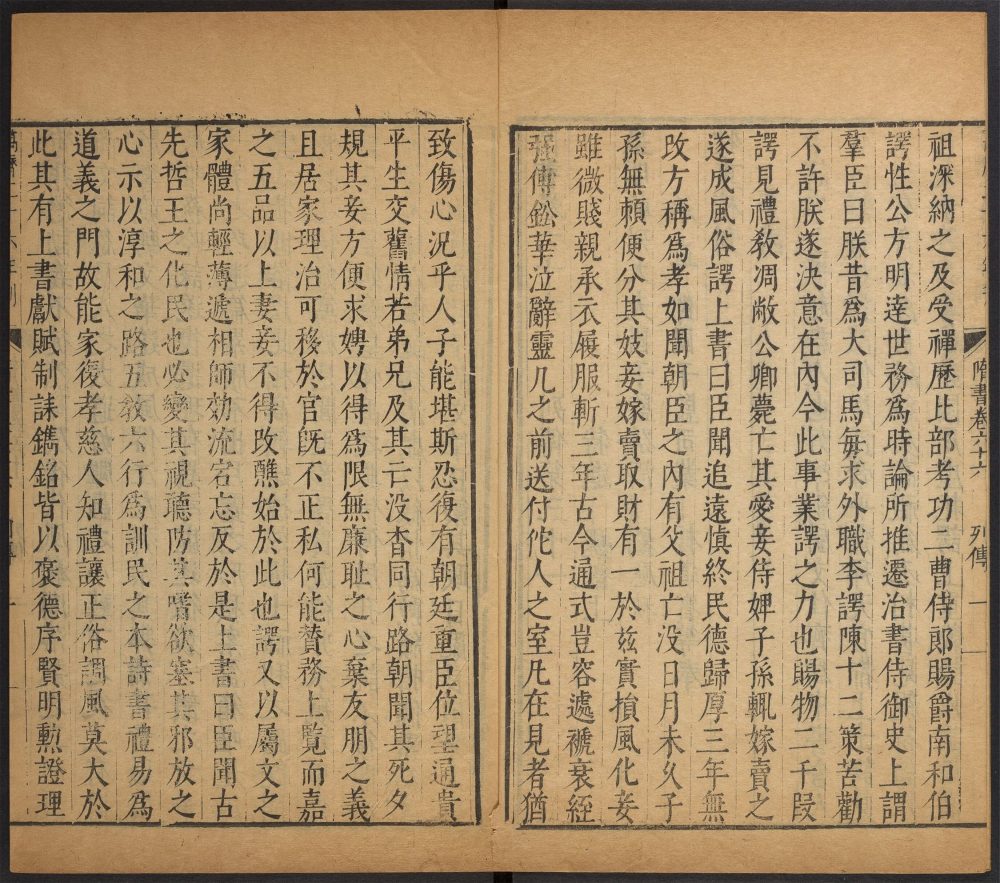 隋書卷六十六
列傳
一
祖深納之及受禪歷比部考功二曹侍郎賜爵南和伯
諤性公方明達世務爲時論所推遷治書侍御史上謂
羣臣曰朕昔爲大司馬每求外職李諤陳十二策苦勸
不許朕遂決意在內今此事業諤之力也賜物二千段
諤見禮敎凋敝公卿薨亡其愛妾侍婢子孫輒嫁賣之
遂成風俗諤上書曰臣聞追遠愼終民德歸厚三年無
改方稱爲孝如聞朝臣之內有父祖亡没日月未久子
孫無賴便分其妓妾嫁賣取財有一於玆實損風化妾
雖微賤親承衣履服斬三年古今通式豈容遽褫衰絰
强傅鉛華泣辭靈几之前送付佗人之室凡在見者猶
致傷心況乎人子能堪斯忍復有朝廷重臣位望通貴
平生交舊情若弟兄及其亡没杳同行路朝聞其死夕
規其妾方便求娉以得爲限無廉耻之心棄友朋之義
且居家理治可移於官旣不正私何能贊務上覽而嘉
之五品以上妻妾不得改醮始於此也諤又以屬文之
家體尚輕薄遞相師効流宕忘反於是上書曰臣聞古
先哲王之化民也必變其視聽防其嗜欲塞其邪放之
心示以淳和之路五敎六行爲訓民之本詩書禮易爲
道義之門故能家復孝慈人知禮讓正俗調風莫大於
此其有上書獻賦制誄鐫銘皆以褒德序賢明勳證理